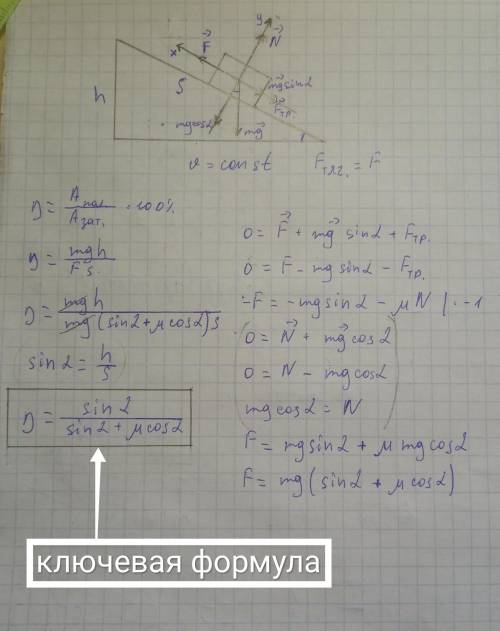 y
x F⃗ N⃗
S
h
mg⃗sinα
F⃗тр.
mgcosα mg⃗
υ = const Fтяг. = F
η = Aпол. / Aзат. · 100%
η = mgh / Fs
η = mgh / mg(sinα + μcosα)s
sinα = h/s
η = sinα / (sinα + μcosα)
0 = F⃗ + mg⃗ sinα + Fтр.
0 = F - mgsinα - Fтр.
-F = -mgsinα - μN | · -1
0 = N⃗ + mg⃗cosα
0 = N - mgcosα
mgcosα = N
F = mgsinα + μmgcosα
F = mg(sinα + μcosα)
ключевая формула